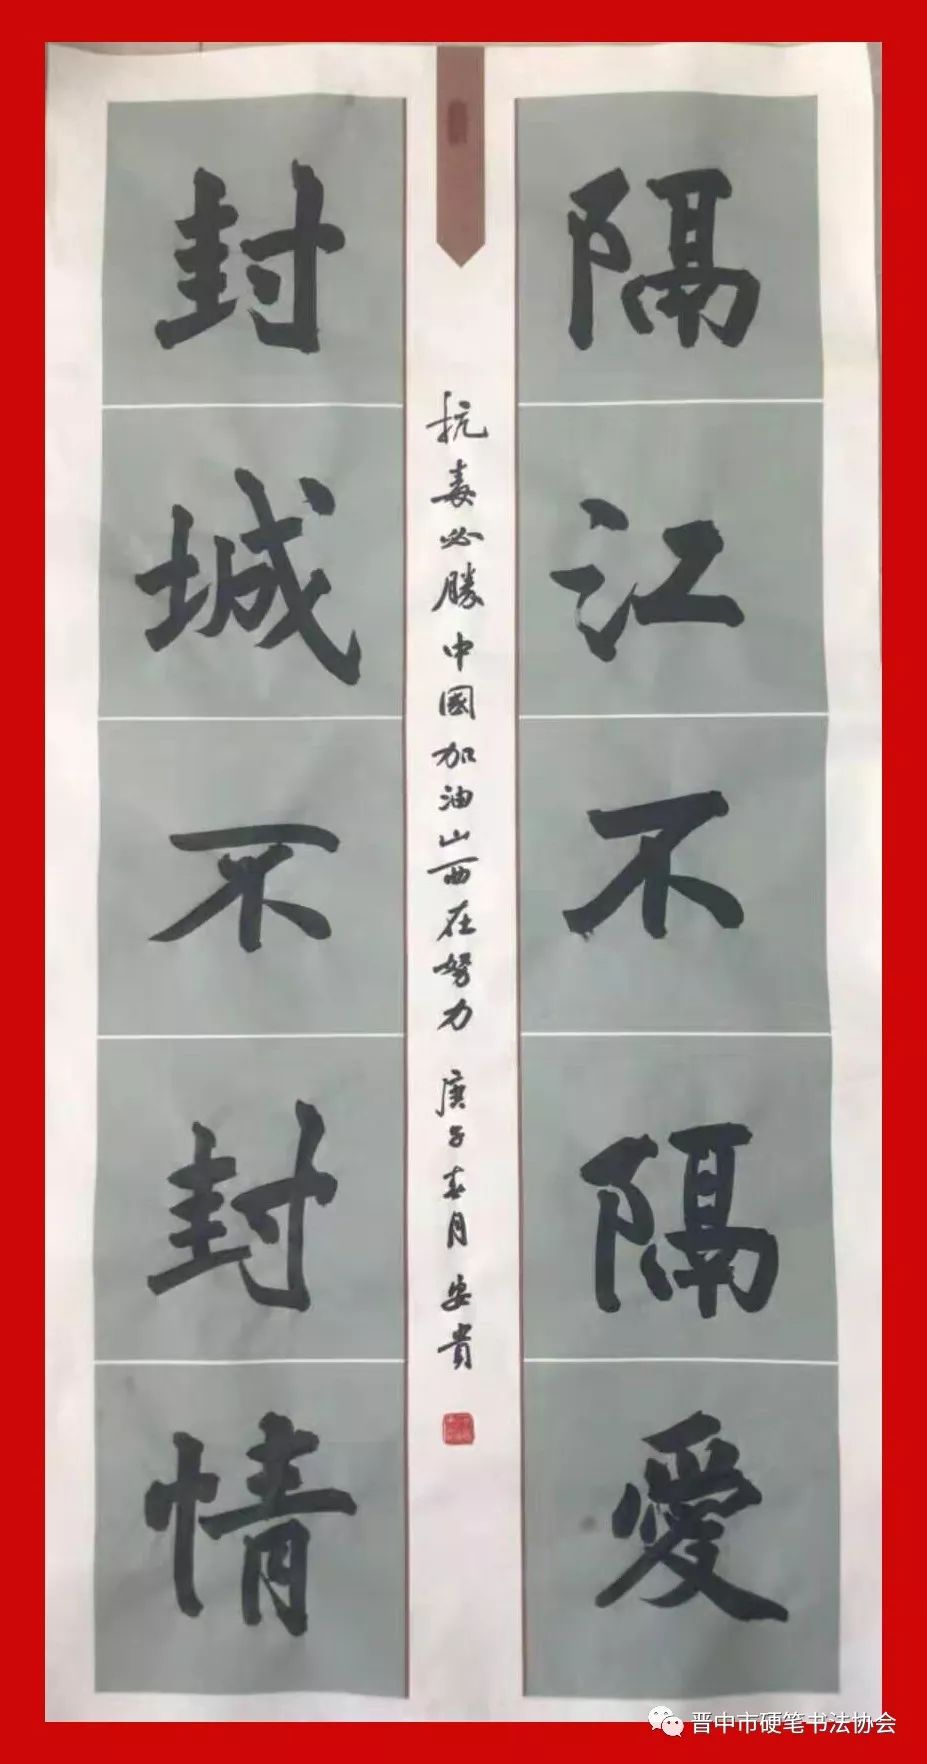 隔江不隔愛
封城不封情
抗毒必勝中國加油山西在努力 庚子春月安貴
晋中市硬笔书法协会